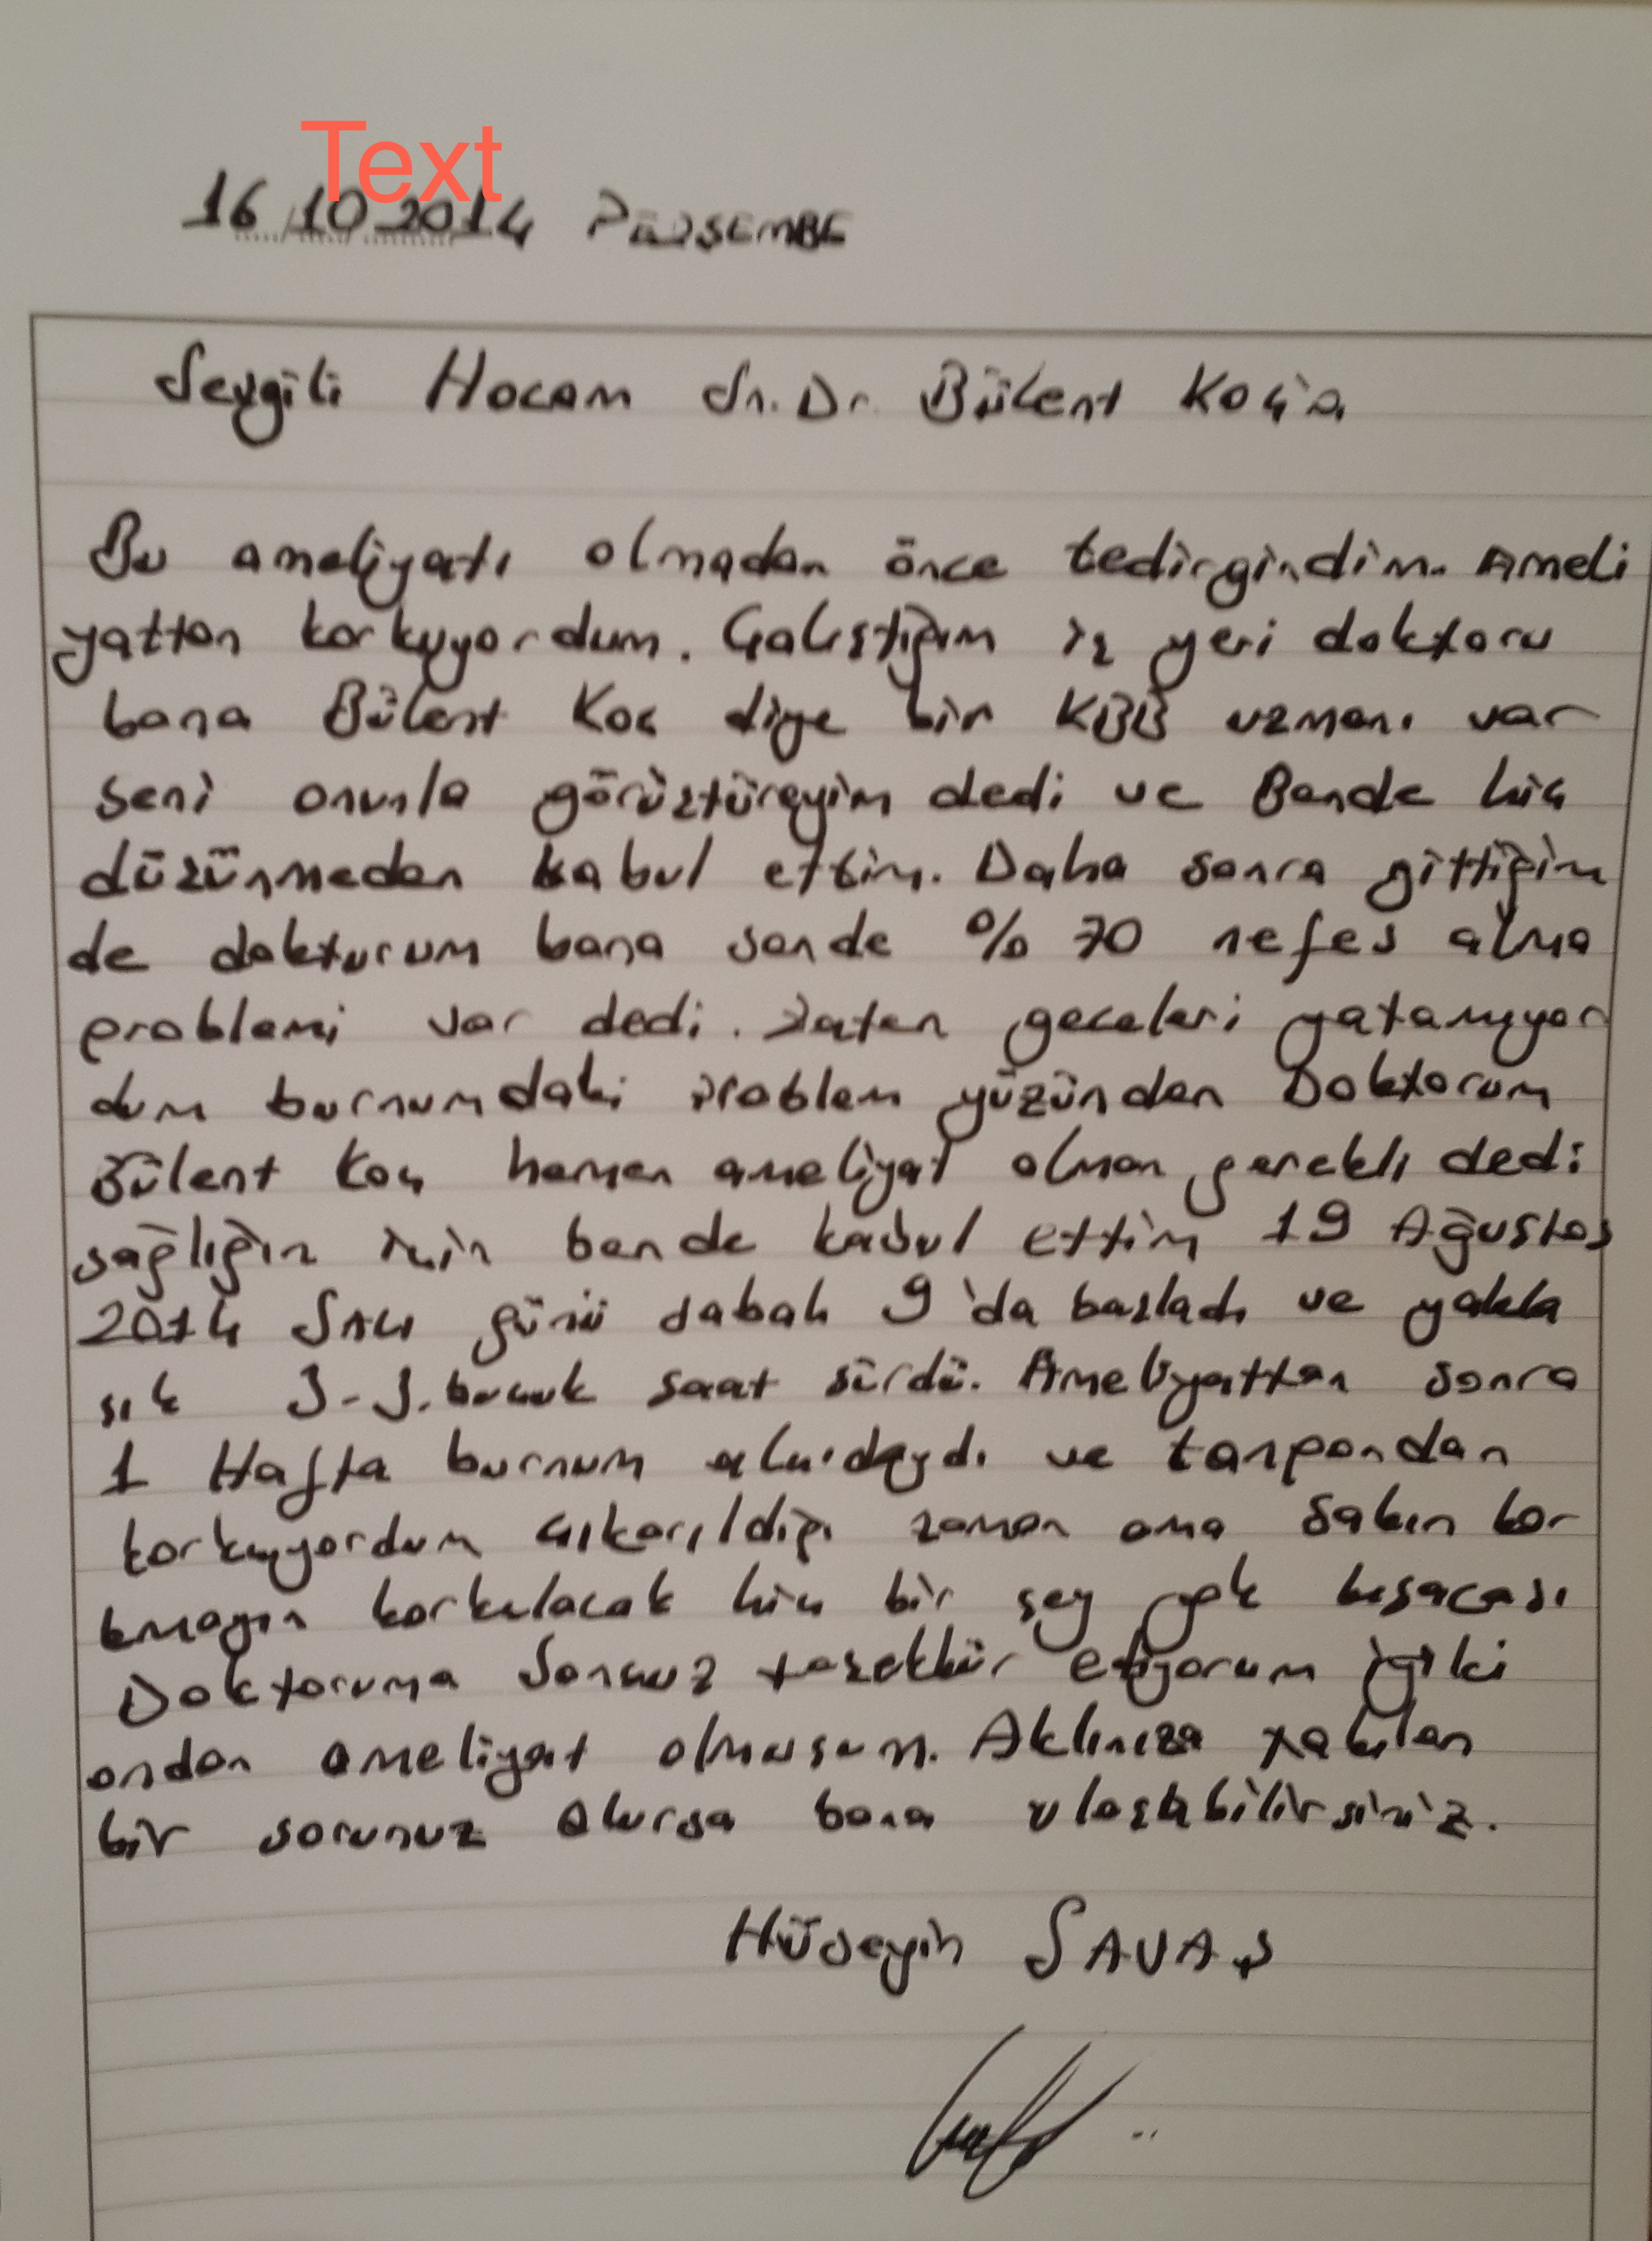 Text
16.10.2014 PERŞEMBE
Sevgili Hocam Sn. Dr. Bülent Koç'a
Bu ameliyatı olmadan önce tedirgindim. Ameli
yattan korkuyordum. Çalıştığım iş yeri doktoru
bana Bülent Koç diye bir KBB uzmanı var
seni onunla görüştüreyim dedi ve Bende hiç
düşünmeden kabul ettim. Daha sonra gittiğim
de dokturum bana sende % 70 nefes alma
problemi var dedi. Zaten geceleri yatamıyor
dum burnumdaki problem yüzünden Doktorum
Bülent Koç hemen ameliyat olman gerekli dedi
sağlığın için bende kabul ettim 19 Ağustos
2014 Salı günü sabah 9'da başladı ve yakla
şık 3-3.buçuk saat sürdü. Ameliyattan sonra
1 Hafta burnum alçıdaydı ve tanpondan
korkuyordum çıkarıldığı zaman ama sakın kor
kmayın korkulacak hiç bir şey yok kısacası
Doktoruma Sonsuz teşekkür ediyorum iyiki
ondan ameliyat olmuşum. Aklınıza takılan
bir sorunuz olursa bana ulaşabilirsiniz.
Hüseyin SAVAŞ